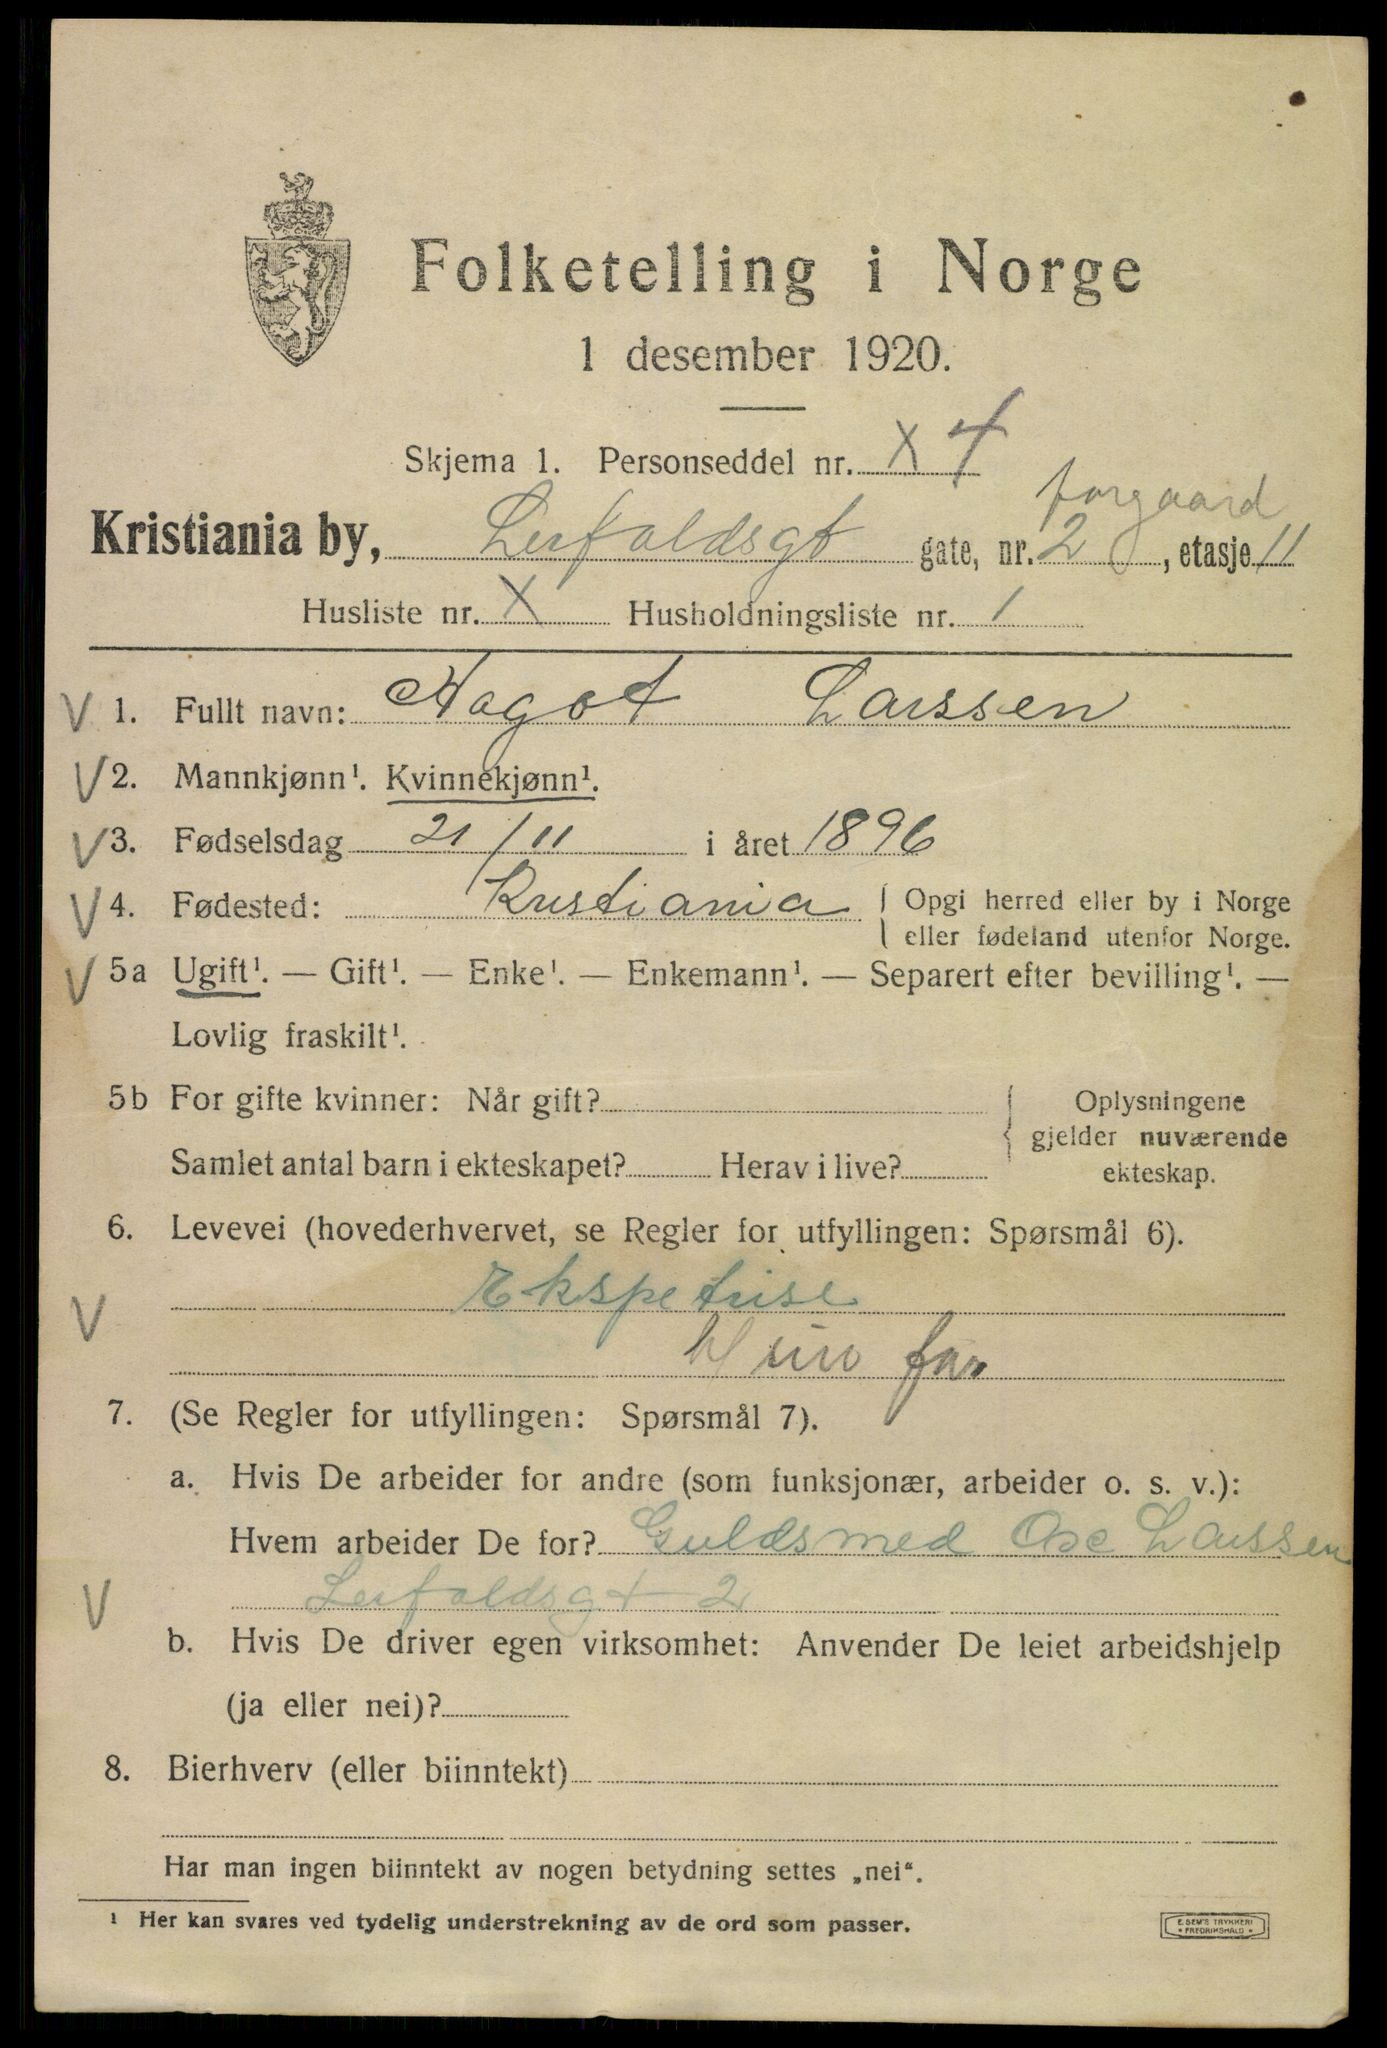 Folketelling i Norge
1 desember 1920.
Skjema 1. Personseddel nr. X 4
forgaard
Kristiania by, Leirfaldsgt gate, nr. 2, etasje 11
Husliste nr. X Husholdningsliste nr. 1
V 1. Fullt navn: Aagot Larssen
V 2. Mannkjønn¹. Kvinnekjønn¹.
V 3. Fødselsdag 21/11 i året 1896
V 4. Fødested: Kristiania { Opgi herred eller by i Norge
eller fødeland utenfor Norge.
V 5a Ugift¹. — Gift¹. — Enke¹. — Enkemann¹. — Separert efter bevilling¹. —
Lovlig fraskilt¹.
5b For gifte kvinner: Når gift? { Oplysningene
gjelder nuværende
Samlet antal barn i ekteskapet? Herav i live? ekteskap.
6. Levevei (hovederhvervet, se Regler for utfyllingen: Spørsmål 6).
V Ekspetrise
h/ sin far
7. (Se Regler for utfyllingen: Spørsmål 7).
a. Hvis De arbeider for andre (som funksjonær, arbeider o. s. v.):
Hvem arbeider De for? Guldsmed Osc Larssen
V Leirfaldsgt 2
b. Hvis De driver egen virksomhet: Anvender De leiet arbeidshjelp
(ja eller nei)?
8. Bierhverv (eller biinntekt)
Har man ingen biinntekt av nogen betydning settes „nei“.
¹ Her kan svares ved tydelig understrekning av de ord som passer.
E. SEM'S TRYKKERI
* FREDRIKSHALD *